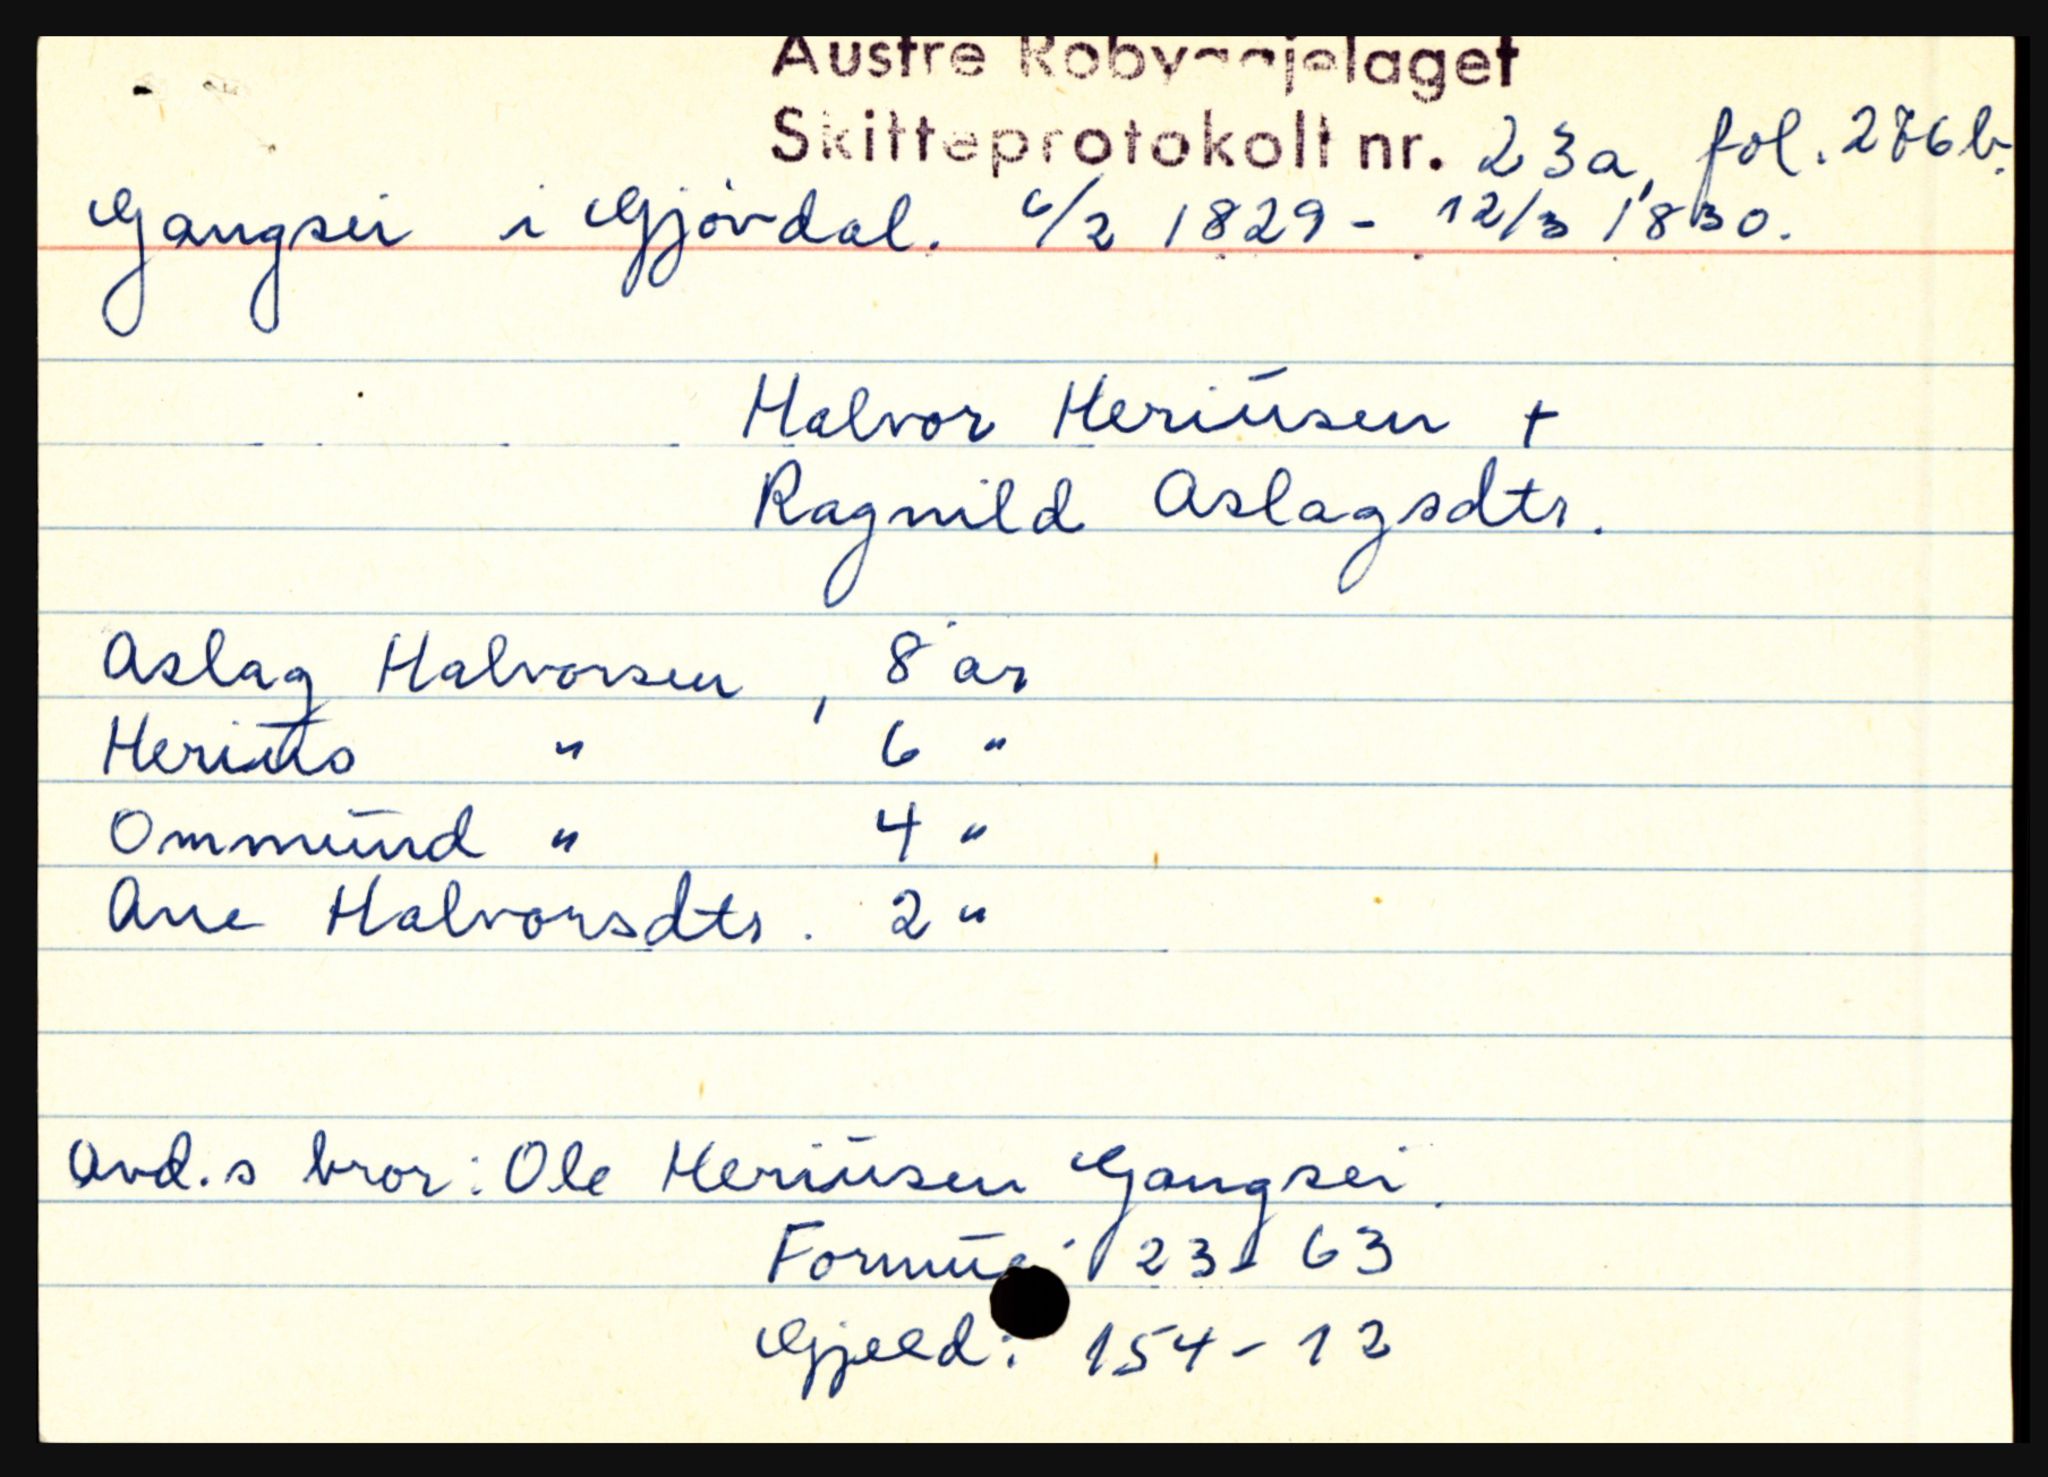 Austre Robyggjelaget
Skifteprotokoll nr. 23a, fol. 276b.
Gangsei i Gjövdal. 6/2 1829 - 12/3 1830.
Halvor Heriusen +
Ragnild Aslagsdtr.
Aslag Halvorsen, 8 år
Herius " 6 "
Ommund " 4 "
Ane Halvorsdtr. 2 "
Avd.s bror: Ole Heriusen Gangsei.
Formue: 23 - 63
Gjeld: 154 - 12